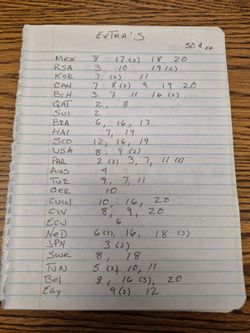 EXTRA'S
50¢ ea
MEX 8 17(2) 18 20
RSA 3 10 19(2)
KOR 7(2) 11
CAN 7 8(2) 9 19 20
BIH 3 7 11 16(2)
QAT 2, 8
SUI 2
BRA 6, 16, 17
HAI 7, 19
SCO 12, 16, 19
USA 8, 9(2)
PAR 2(2) 3, 7, 11(2)
AUS 4
TUR 4, 7, 11
GER 10
CUW 10, 16, 20
CIV 8, 9, 20
ECU 6
NED 6(2), 16, 18(3)
JPN 3(2)
SWE 8, 18
TUN 5(2), 10, 11
BEL 8, 16(3), 20
EGY 4(2) 12